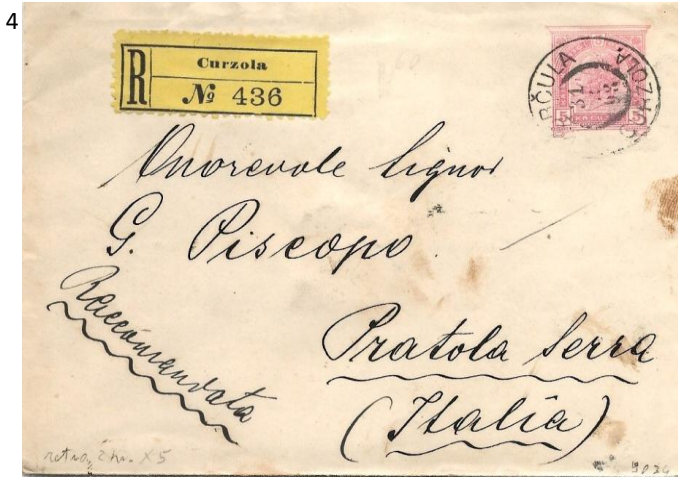 4
Curzola
R
№ 436
KORČULA
CURZOLA
5 5
Onorevole Signor
G. Piscopo.
Raccomandata
Pratola Serra
(Italia)
retro, 2 X5